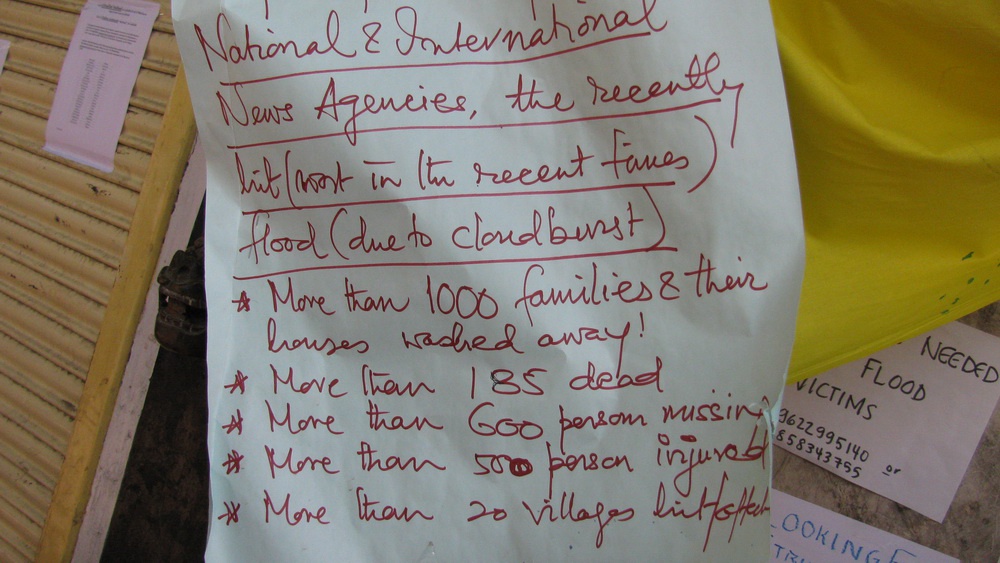 National & International
News Agencies, the recently
hit (most in the recent times)
flood (due to cloudburst)
* More than 1000 families & their
houses washed away!
* More than 185 dead
* More than 600 person missing
* More than 500 person injured
* More than 20 villages hit/
NEEDED
FLOOD
VICTIMS
9622995140 or
858343755
LOOKING F